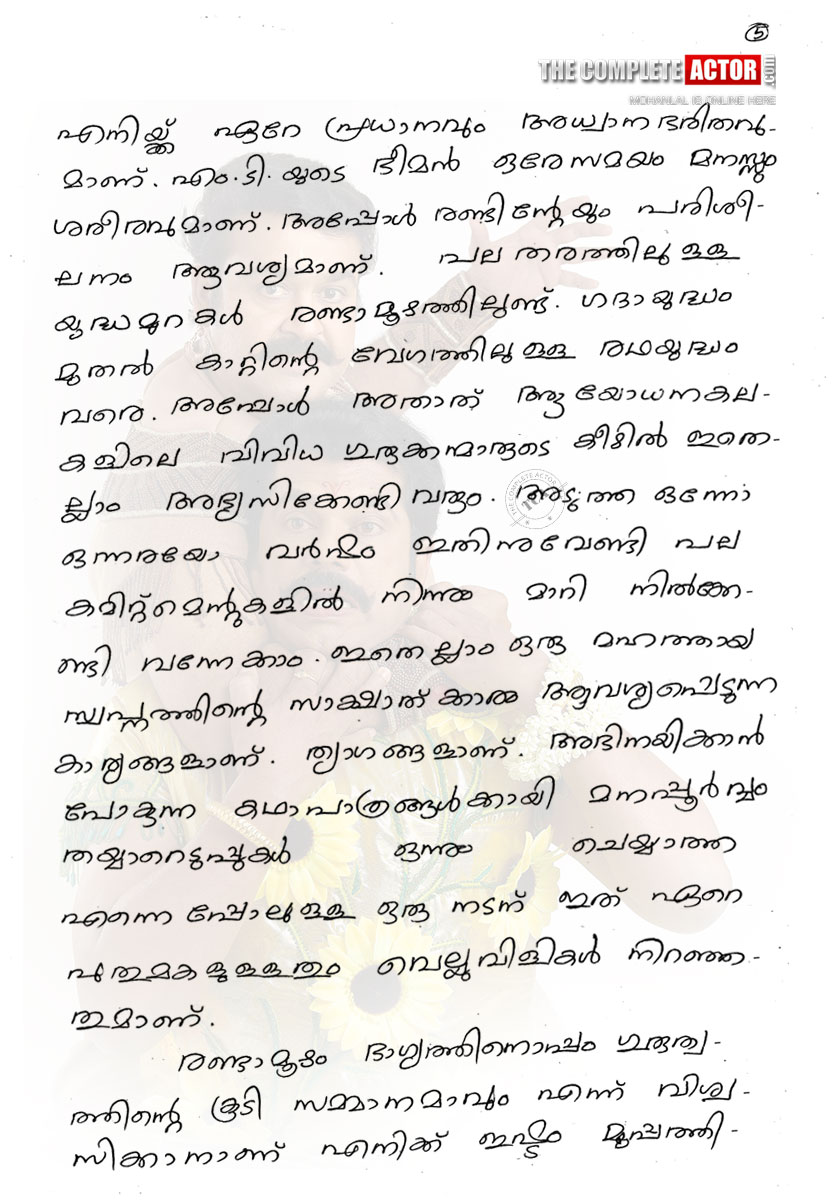 5
THE COMPLETE ACTOR .COM
MOHANLAL IS ONLINE HERE
എനിയ്ക്ക് ഏറേ പ്രധാനവും അധ്വാനഭരിതവു-
മാണ്. എം.ടി. യുടെ ഭീമൻ ഒരേസമയം മനസ്സും
ശരീരവുമാണ്. അപ്പോൾ രണ്ടിന്റേയും പരിശീ-
ലനം ആവശ്യമാണ്. പലതരത്തിലുള്ള
യുദ്ധമുറകൾ രണ്ടാമൂഴത്തിലുണ്ട്. ഗദായുദ്ധം
മുതൽ കാറ്റിന്റെ വേഗത്തിലുള്ള രഥയുദ്ധം
വരെ. അപ്പോൾ അതാത് ആയോധനകല-
കളിലെ വിവിധ ഗുരുക്കന്മാരുടെ കീഴിൽ ഇതെ-
ല്ലാം അഭ്യസിക്കേണ്ടി വരും. അടുത്ത ഒന്നോ
ഒന്നരയോ വർഷം ഇതിനുവേണ്ടി പല
കമിറ്റ്മെന്റുകളിൽ നിന്നും മാറി നിൽക്കേ-
ണ്ടി വന്നേക്കാം. ഇതെല്ലാം ഒരു മഹത്തായ
സ്വപ്നത്തിന്റെ സാക്ഷാത്ക്കാരം ആവശ്യപ്പെടുന്ന
കാര്യങ്ങളാണ്. ത്യാഗങ്ങളാണ്. അഭിനയിക്കാൻ
പോകുന്ന കഥാപാത്രങ്ങൾക്കായി മനപ്പൂർവ്വം
തയ്യാറെടുപ്പുകൾ ഒന്നും ചെയ്യാത്ത
എന്നെ പ്പോലുള്ള ഒരു നടന് ഇത് ഏറെ
പുതുമകളുള്ളതും വെല്ലുവിളികൾ നിറഞ്ഞ-
തുമാണ്.
രണ്ടാമൂഴം ഭാഗ്യത്തിനൊപ്പം ഗുരുത്വ-
ത്തിന്റെ കൂടി സമ്മാനമാവും എന്ന് വിശ്വ-
സിക്കാനാണ് എനിക്ക് ഇഷ്ടം മുപ്പത്തി-